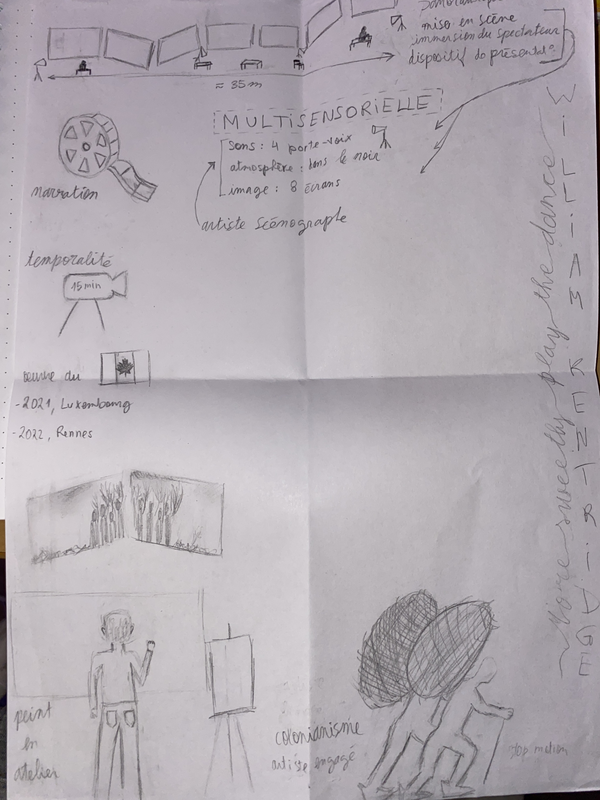 mise en scène
immersion du spectateur
dispositif de présentat°
≈ 35 m
MULTISENSORIELLE
sons : 4 porte-voix
atmosphère : dans le noir
image : 8 écrans
artiste scénographe
narration
temporalité
15 min
oeuvre du
- 2021, Luxembourg
- 2022, Rennes
More sweetly play the dance
WILLIAM KENTRIDGE
peint
en
atelier
colonianisme
artise engagé
stop motion